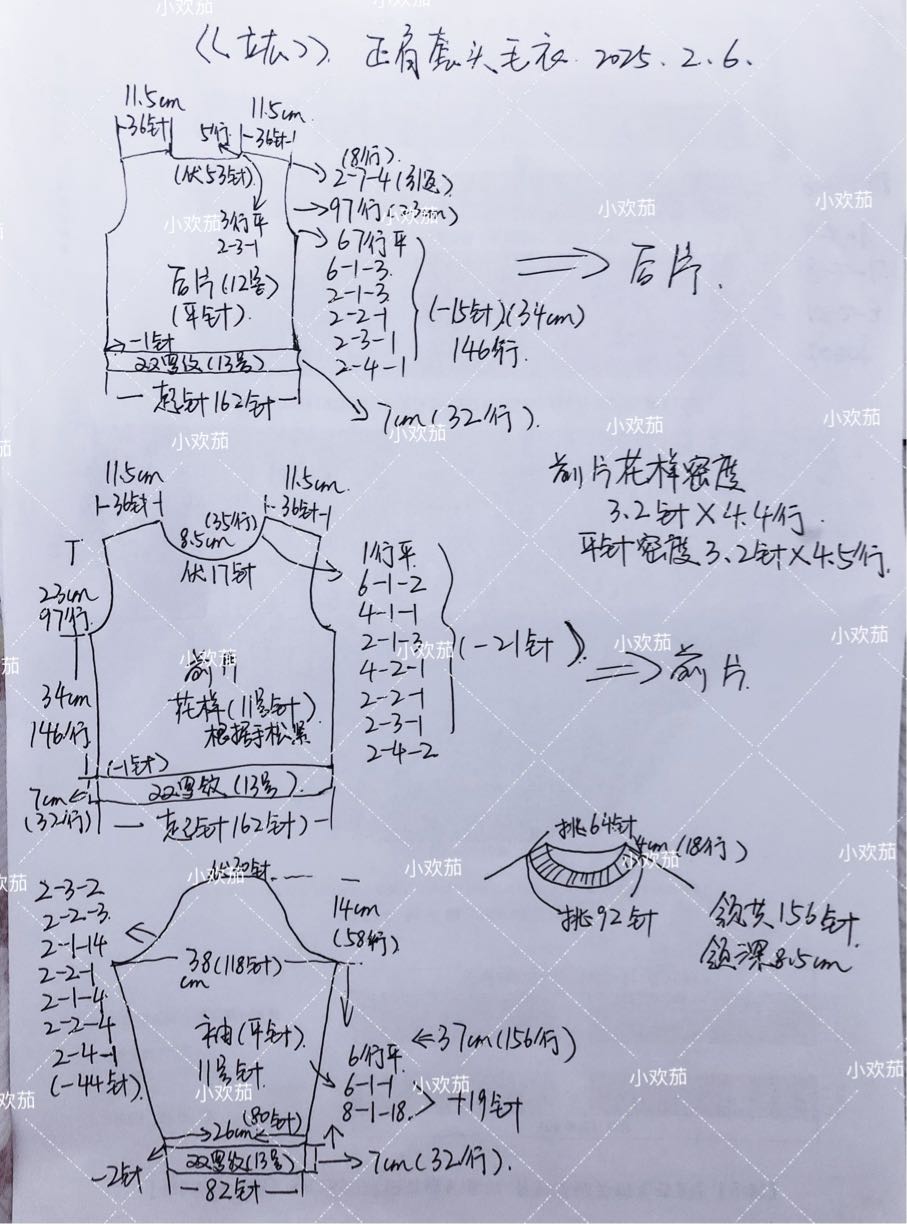 《立志》正肩套头毛衣 2025.2.6.
11.5cm
36针
5行
11.5cm
36针
(伏53针)
3行平
2-3-1
后片(12号)
(平针)
-1针
双罗纹(13号)
起针162针
(8行)
2-7-4(31返)
97行(23cm)
67行平
6-1-3
2-1-3
2-2-1
2-3-1
2-4-1
(-15针)(34cm)
146行
后片.
7cm(32行).
前片花样密度
3.2针×4.4行
平针密度3.2针×4.5行.
11.5cm
36针
11.5cm
36针
(35行)
8.5cm
伏17针
23cm
97行
34cm
146行
7cm
(32行)
前片
花样(11号针)
根据手松紧
(-1针)
双罗纹(13号).
起针162针)
1行平
6-1-2
4-1-1
2-1-3
4-2-1
2-2-1
2-3-1
2-4-2
(-21针)
前片
挑64针
4cm(18行)
挑92针
领共156针
领深8.5cm
伏30针
14cm
(58行)
2-3-2
2-2-3
2-1-14
2-2-1
2-1-4
2-2-4
2-4-1
(-44针)
38(118针)
cm
袖(平针).
11号针
37cm(156行)
6行平
6-1-1
8-1-18
+19针
26cm(80针)
双罗纹(13号)
-2针
82针
7cm(32行).
小欢茄